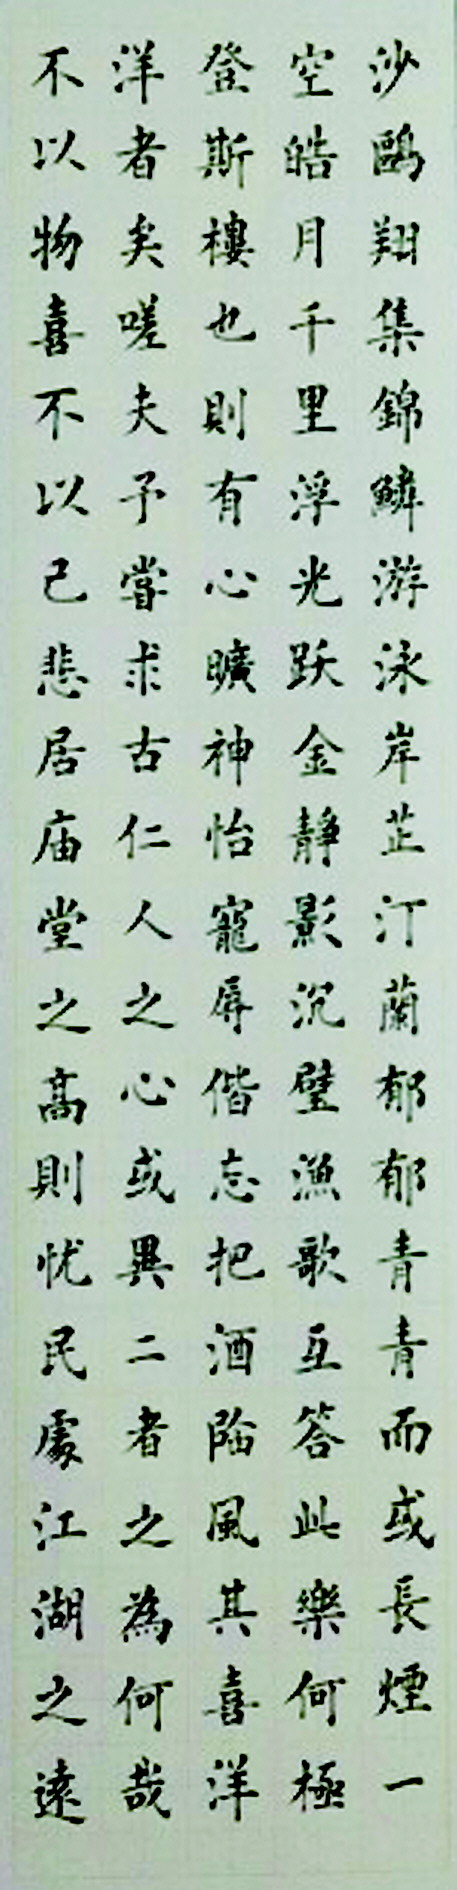 沙鷗翔集錦鱗游泳岸芷汀蘭郁郁青青而或長煙一
空皓月千里浮光跃金静影沉璧漁歌互答此樂何極
登斯樓也則有心曠神怡寵辱偕忘把酒臨風其喜洋
洋者矣嗟夫予嘗求古仁人之心或異二者之為何哉
不以物喜不以己悲居庙堂之高則忧民處江湖之遠